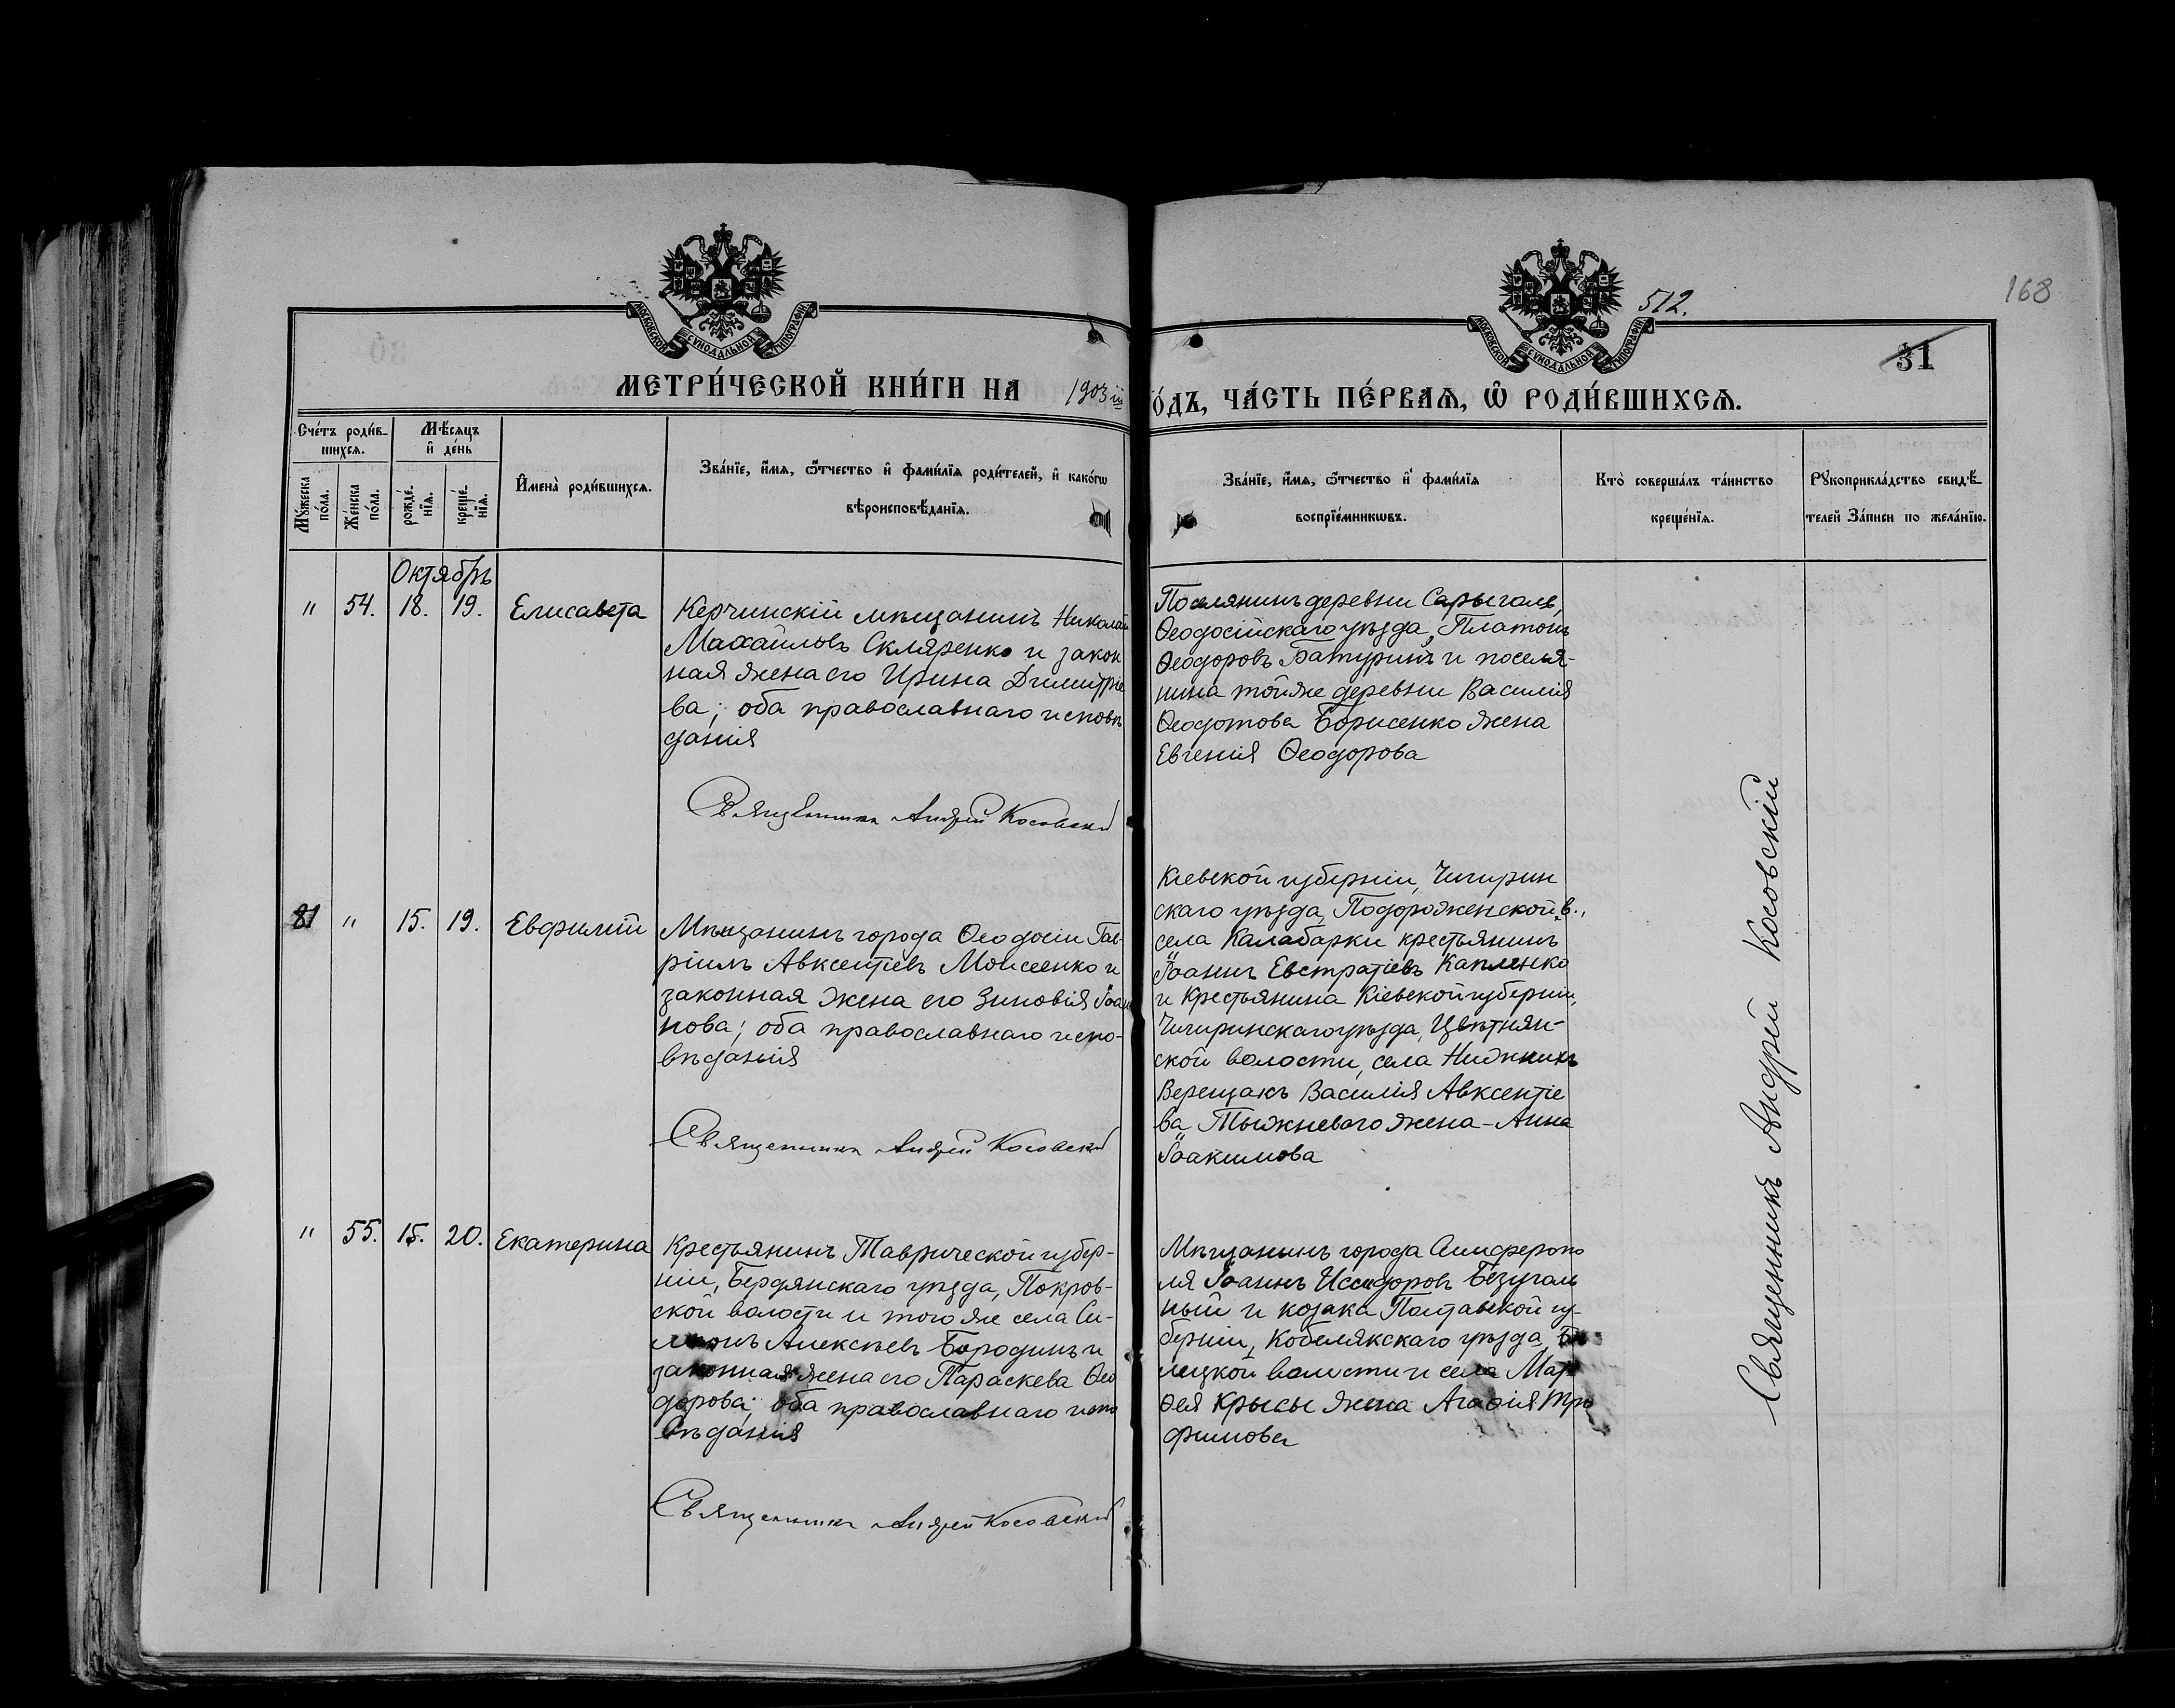 512.
168
31
МОСКОВСКОЙ СУНОДАЛЬНОЙ ТИПОГРАФІИ
МОСКОВСКОЙ СУНОДАЛЬНОЙ ТИПОГРАФІИ
МЕТРИ́ЧЕСКОЙ КНИ́ГИ НА 1903 й
О́ДЪ, ЧА́СТЬ ПЕ́РВАѦ, Ѽ РОДИ́ВШИХСѦ.
Сче́тъ роди́в-
шихсѧ.
Мѣ́сѧцъ
и҆ де́нь
Мꙋ́жеска по́ла.
Же́нска по́ла.
рожде́-
нїѧ.
креще́-
нїѧ.
И҆мена̀ роди́вшихсѧ.
Зва́нїе, и҆́мѧ, ѻ҆́тчество и҆ фами́лїѧ роди́телей, и҆ како́гѡ
вѣроисповѣ́данїѧ.
Зва́нїе, и҆́мѧ, ѻ҆́тчество и҆ фами́лїѧ
воспрїе́мникѡвъ.
Кто̀ соверша́лъ та́инство
креще́нїѧ.
Рꙋкоприкла́дство свидѣ́-
телей За́писи по жела́нїю.
Октябрь
" 54. 18. 19. Елисавета
Керчинскій мѣщанинъ Николай
Михайловъ Скляренко и закон
ная жена его Ирина Димитріе
ва; оба православнаго исповѣ
данія
Священникъ Андрей Косовскій
Поселянинъ деревни Сарыголь,
Ѳеодосійскаго уѣзда, Платонъ
Ѳеодоровъ Батуринъ и поселя-
нина той же деревни Василія
Ѳеодотова Борисенко жена
Евгенія Ѳеодорова
81 " 15. 19. Евфимій
Мѣщанинъ города Ѳеодосіи Гав-
ріилъ Авксентіевъ Моисеенко и
законная жена его Зиновія Іоан
нова; оба православнаго испо-
вѣданія
Священникъ Андрей Косовскій
Кіевской губерніи, Чигирин
скаго уѣзда, Подорожненской в.,
села Калабарки крестьянинъ
Іоаннъ Евстратіевъ Капленко
и крестьянина Кіевской губерніи,
Чигиринскаго уѣзда, Цвѣтнян-
ской волости, села Нижнихъ
Верещакъ Василія Авксентіе
ва Тыжневаго жена - Анна
Іоакимова
" 55. 15. 20. Екатерина
Крестьянинъ Таврической губер-
ніи, Бердянскаго уѣзда, Покров-
ской волости и того же села Си-
меонъ Алексѣевъ Бородинъ и
законная жена его Параскева Ѳео
дорова; оба православнаго испо
вѣданія
Священникъ Андрей Косовскій
Мѣщанинъ города Симферопо
ля Іоаннъ Исидоровъ Безуголь
ный и козака Полтавской гу-
берніи, Кобелякскаго уѣзда, Бѣ
лицкой волости и села Мат
ѳея Крысы жена Агафія Тро
фимова
Священникъ Андрей Косовскій